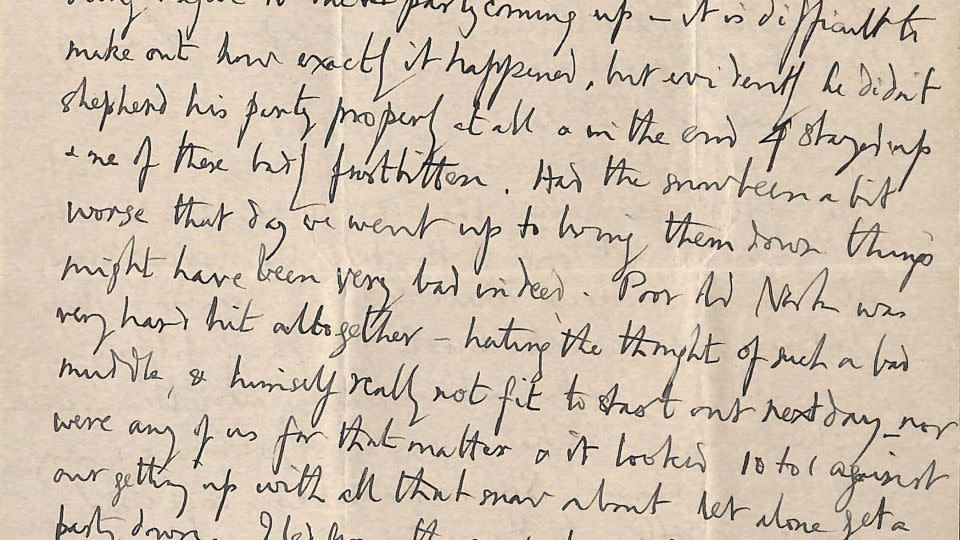 party coming up – it is difficult to
make out how exactly it happened, but evidently he didn't
shepherd his party properly at all & in the end 4 stayed up
& one of these badly frostbitten. Had the snow been a bit
worse that day we went up to bring them down things
might have been very bad indeed. Poor old was
very hard hit altogether – hating the thought of such a bad
muddle, & himself really not fit to start out next day – nor
were any of us for that matter & it looked 10 to 1 against
our getting up with all that snow about let alone get a
party down. I